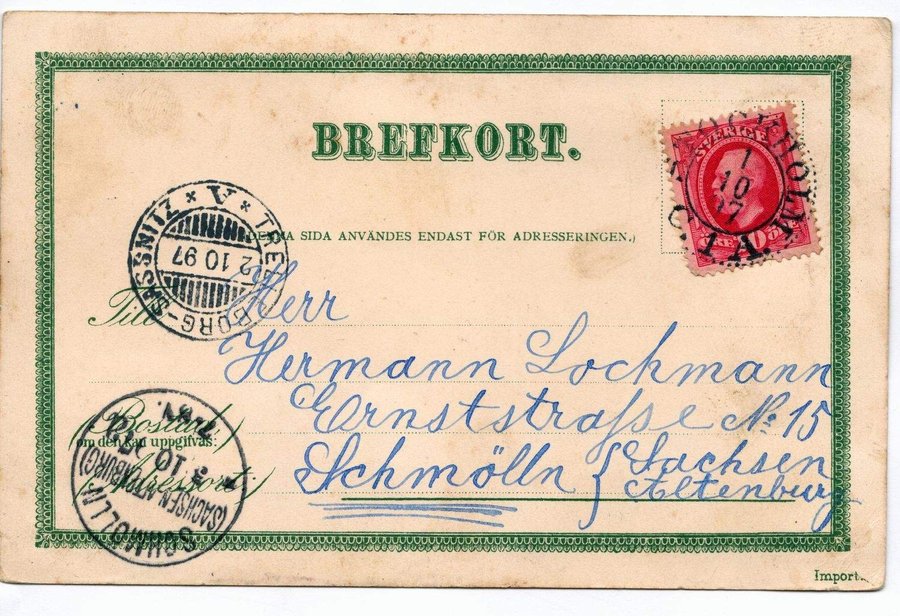 BREFKORT.
SVERIGE
STOCKHOLM
1
10
97
C. 1. A.
10 ÖRE
SASSNITZ * V * TRELLEBORG-
2 10 97
(DENNA SIDA ANVÄNDES ENDAST FÖR ADRESSERINGEN.)
Till
Herr
Hermann Lochmann
Ernststraße No. 15
(Bostad)
om den kan uppgifvas:
(Adressort)
Schmölln { Sachsen
Altenburg
SCHMÖLLN
(SACHSEN-ALTENBURG)
Import.